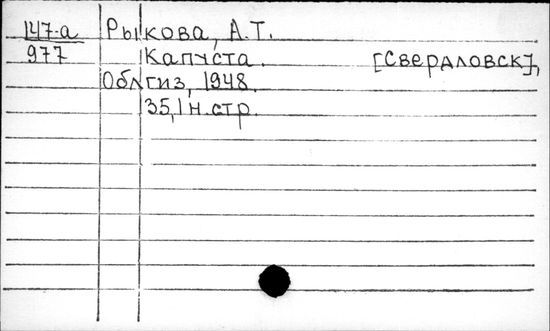 147-а Рыкова, А.Т.
977 Капуста. [Свердловск],
Облгиз, 1948.
35,1 н.стр.